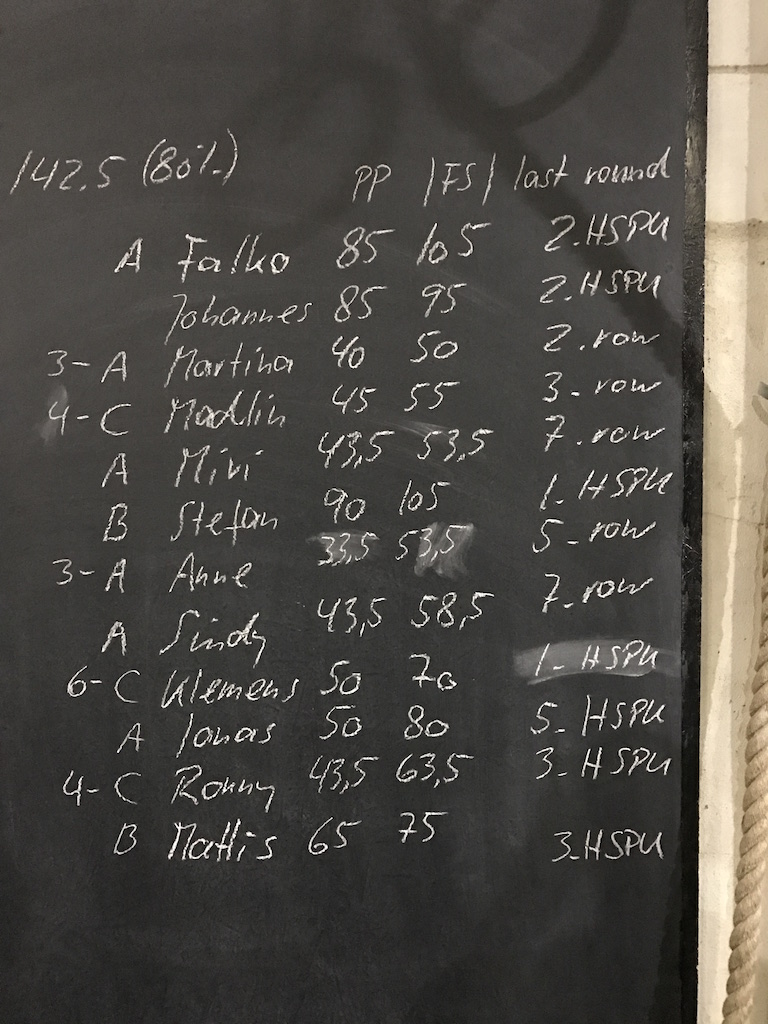 142.5 (80%) PP |FS| last round
A Falko 85 105 2. HSPU
Johannes 85 95 2. HSPU
3-A Martina 40 50 2. row
4-C Madlin 45 55 3. row
A Mivi 43,5 53,5 7. row
B Stefan 90 105 1. HSPU
3-A Anne 33,5 53,5 5. row
A Sindy 43,5 58,5 7. row
6-C Klemens 50 70 1. HSPU
A Jonas 50 80 5. HSPU
4-C Ronny 43,5 63,5 3. HSPU
B Mattis 65 75 3. HSPU